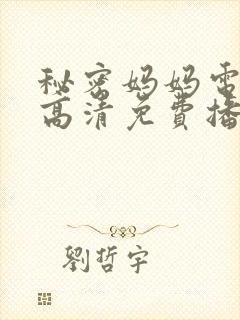 秘密妈妈电
高清免費播
劉哲宇